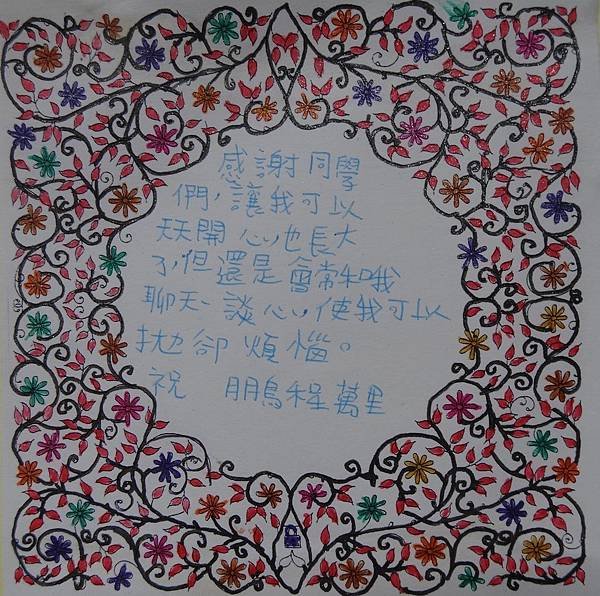 感謝同學
們，讓我可以
天天開心也長大
了，但還是會常和我
聊天、談心使我可以
拋卻煩惱。
祝　鵬程萬里